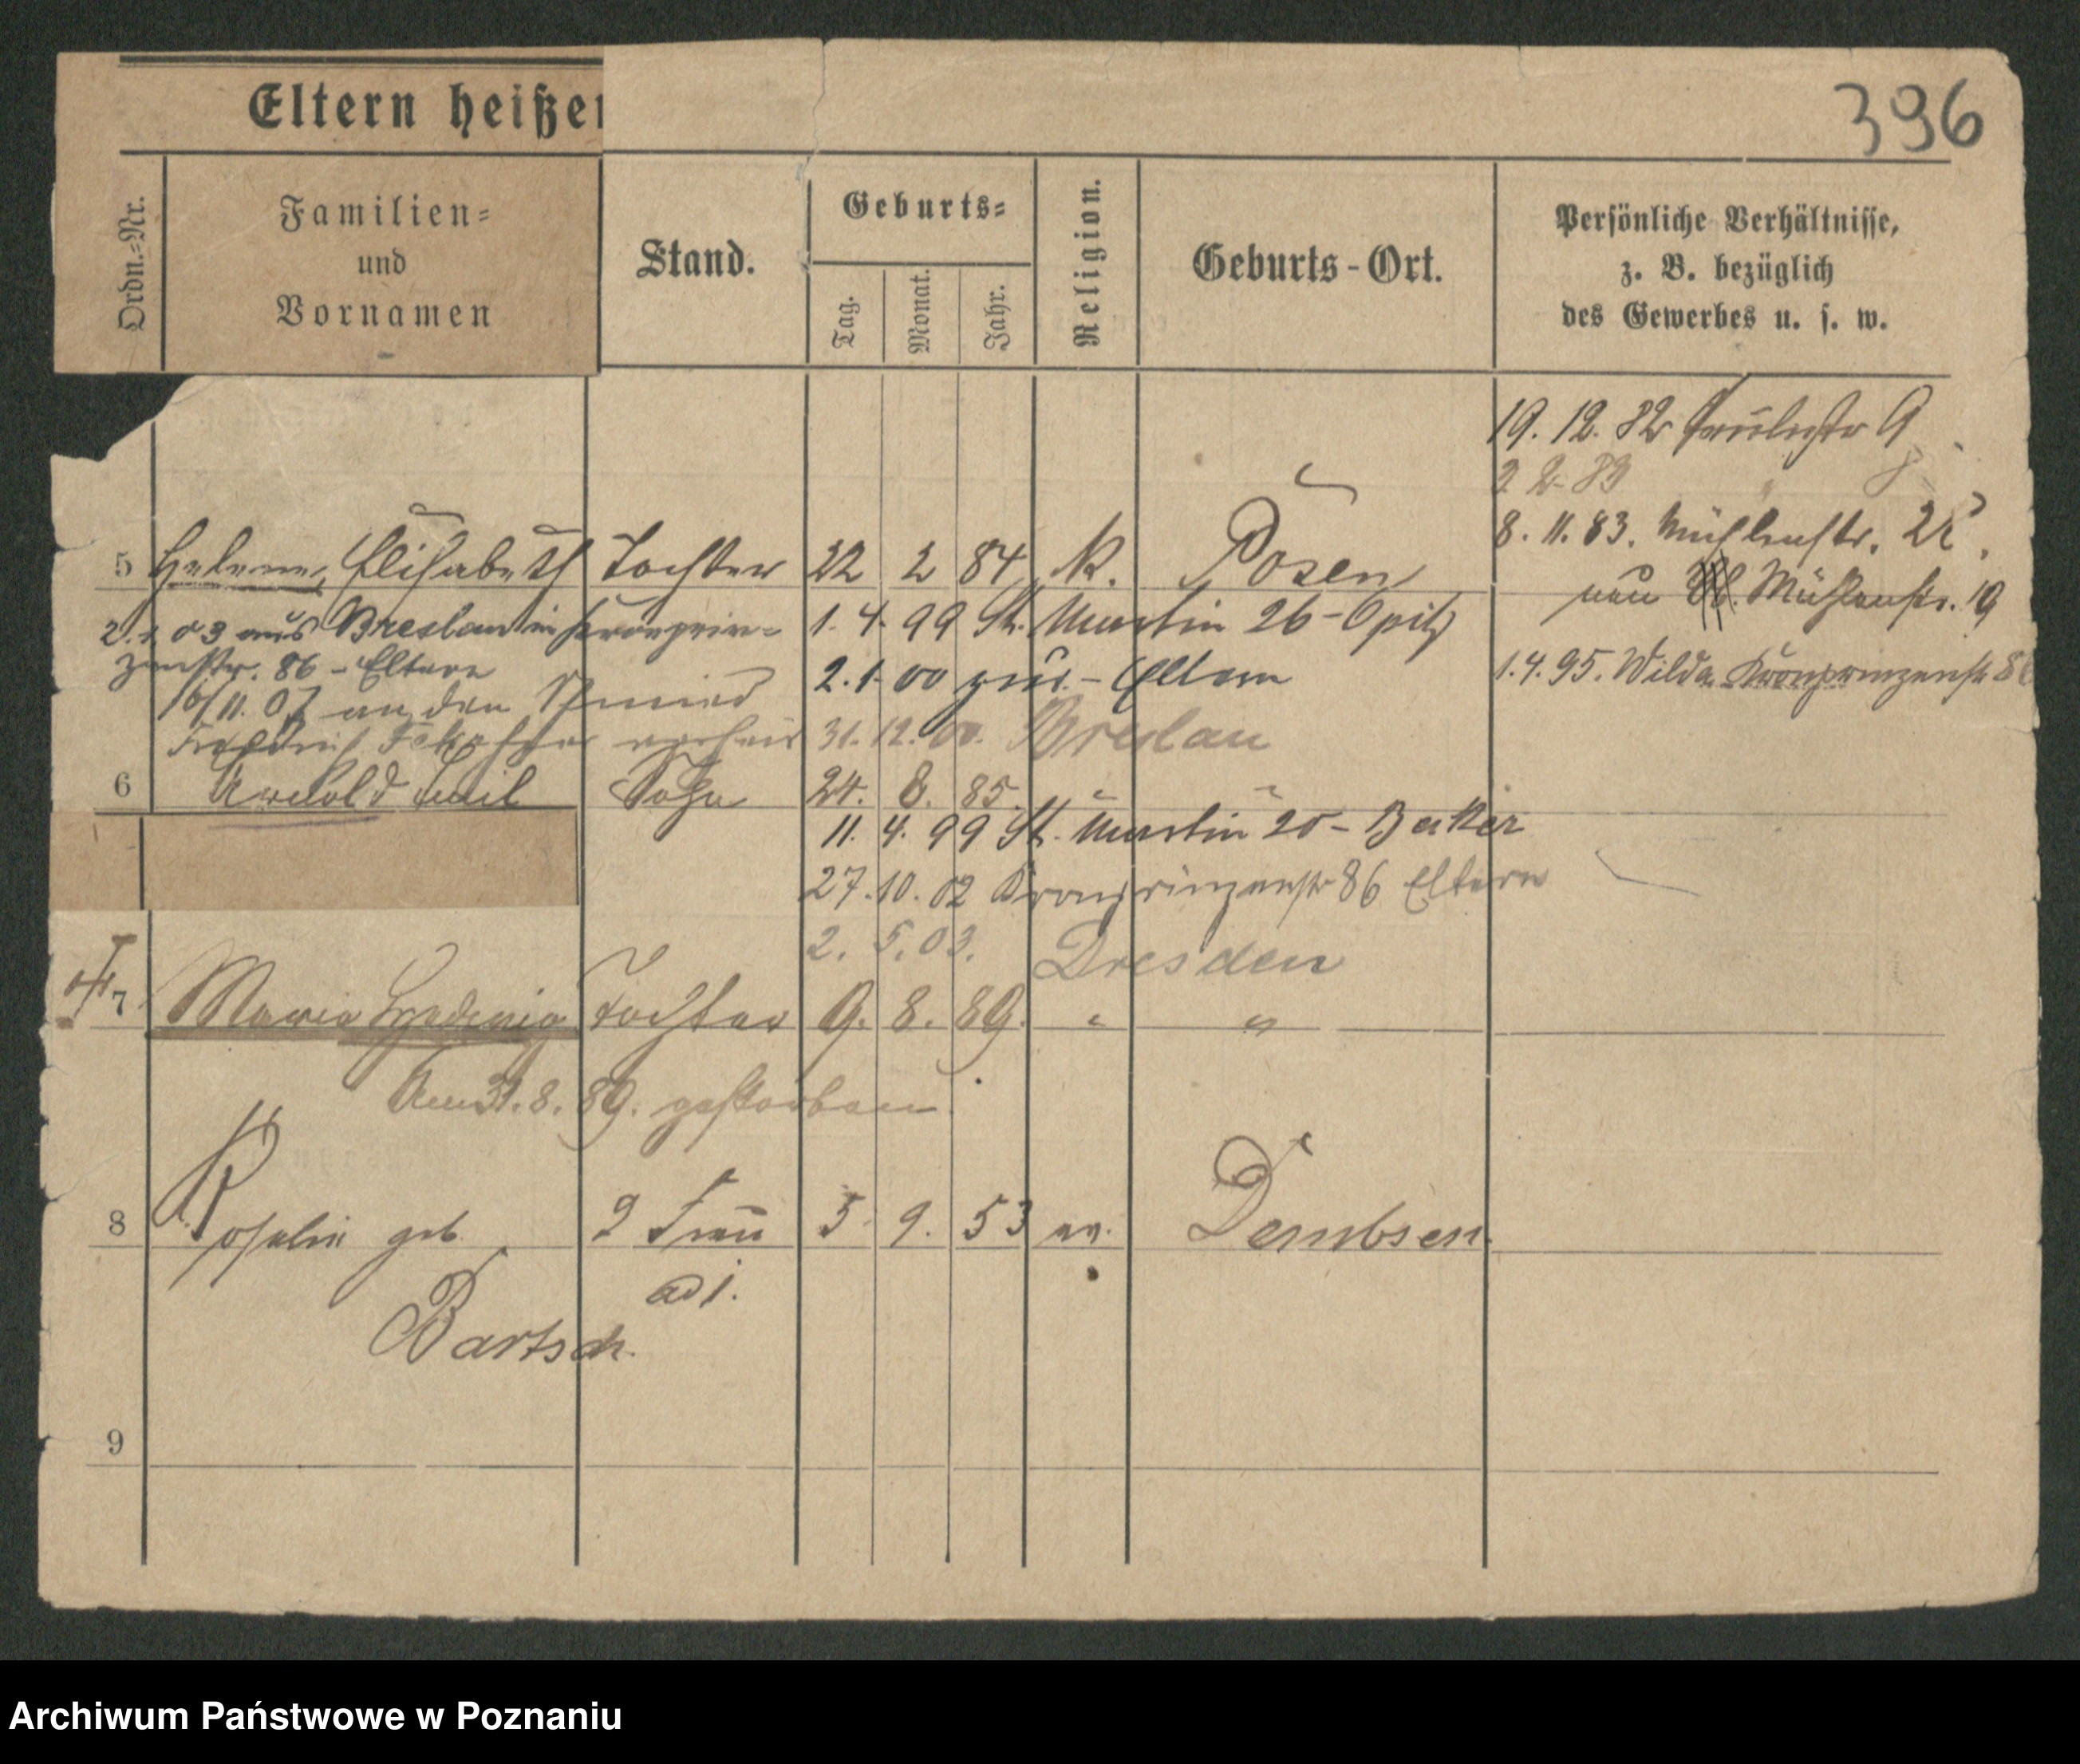 Eltern heißen
396
Ordn.=Nr.
Familien=
und
Vornamen
Stand.
Geburts=
Tag.
Monat.
Jahr.
Religion.
Geburts-Ort.
Persönliche Verhältnisse,
z. B. bezüglich
des Gewerbes u. s. w.
19. 12. 82 9
2 2. 83
8. 11. 83. Mühlenstr. 2
5 Helene, Elisabeth Tochter 22 2 84 K. Posen
neu Mühlenstr. 19
2. 1. 03 aus Breslau in Kronprin=
zenstr. 86 - Eltern
1. 4. 99 St. Martin 26 - Opitz
2. 1. 00 zur. - Eltern
1. 4. 95. Wilda, Kronprinzenstr 86
16/11. 07 an den Schmied
31. 12. 00. Breslau
6 Arnold Emil Sohn 24. 8. 85. " "
11. 4. 99 St. Martin 20 - Becker
27. 10. 02 Kronprinzenstr 86 Eltern
2. 5. 03. Dresden
7 Maria Tochter 9. 8. 89. " "
Am 31. 8. 89. gestorben.
8 Rosalie geb. 2 Frau 5. 9. 53 ev. Dembsen.
ad 1.
Bartsch.
9
Archiwum Państwowe w Poznaniu